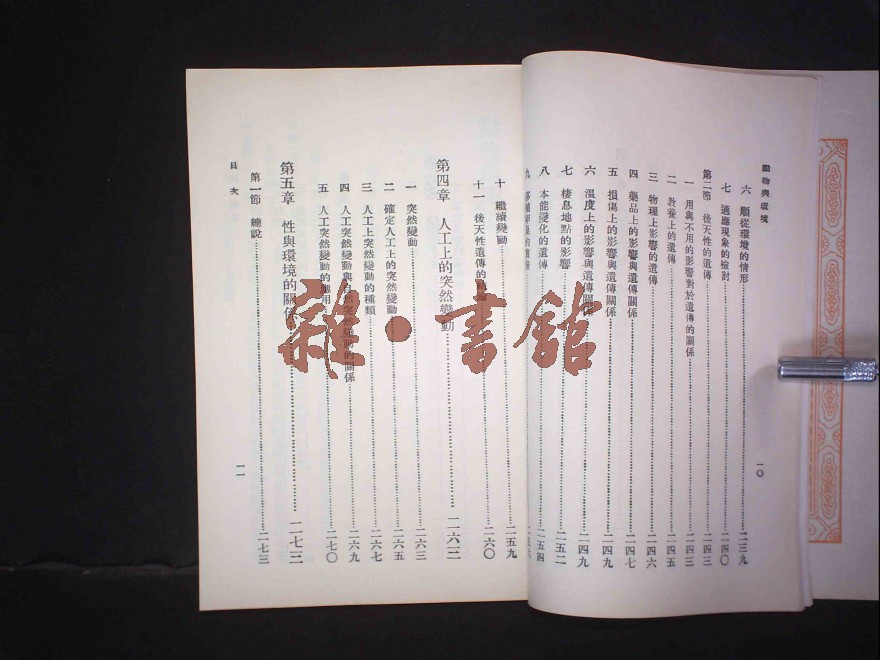 動物與環境
六　順從環境的情形……二三九
七　適應現象的檢討……二四〇
第二節　後天性的遺傳……二四三
一　用與不用的影響對於遺傳的關係……二四三
二　教養上的遺傳……二四五
三　物理上影響的遺傳……二四六
四　藥品上的影響與遺傳關係……二四七
五　損傷上的影響與遺傳關係……二四九
六　溫度上的影響與遺傳關係……二四九
七　棲息地點的影響……二五二
八　本能變化的遺傳……二五四
一〇
十　繼續變動……二五九
十一　後天性遺傳的……二六〇
第四章　人工上的突然變動……二六三
一　突然變動……二六三
二　確定人工上的突然變動……二六五
三　人工上突然變動的種類……二六七
四　人工突然變動與自然突然變動的關係……二六九
五　人工突然變動的應用……二七〇
第五章　性與環境的關係……二七三
第一節　總說……二七三
目次
一一
雜・書館